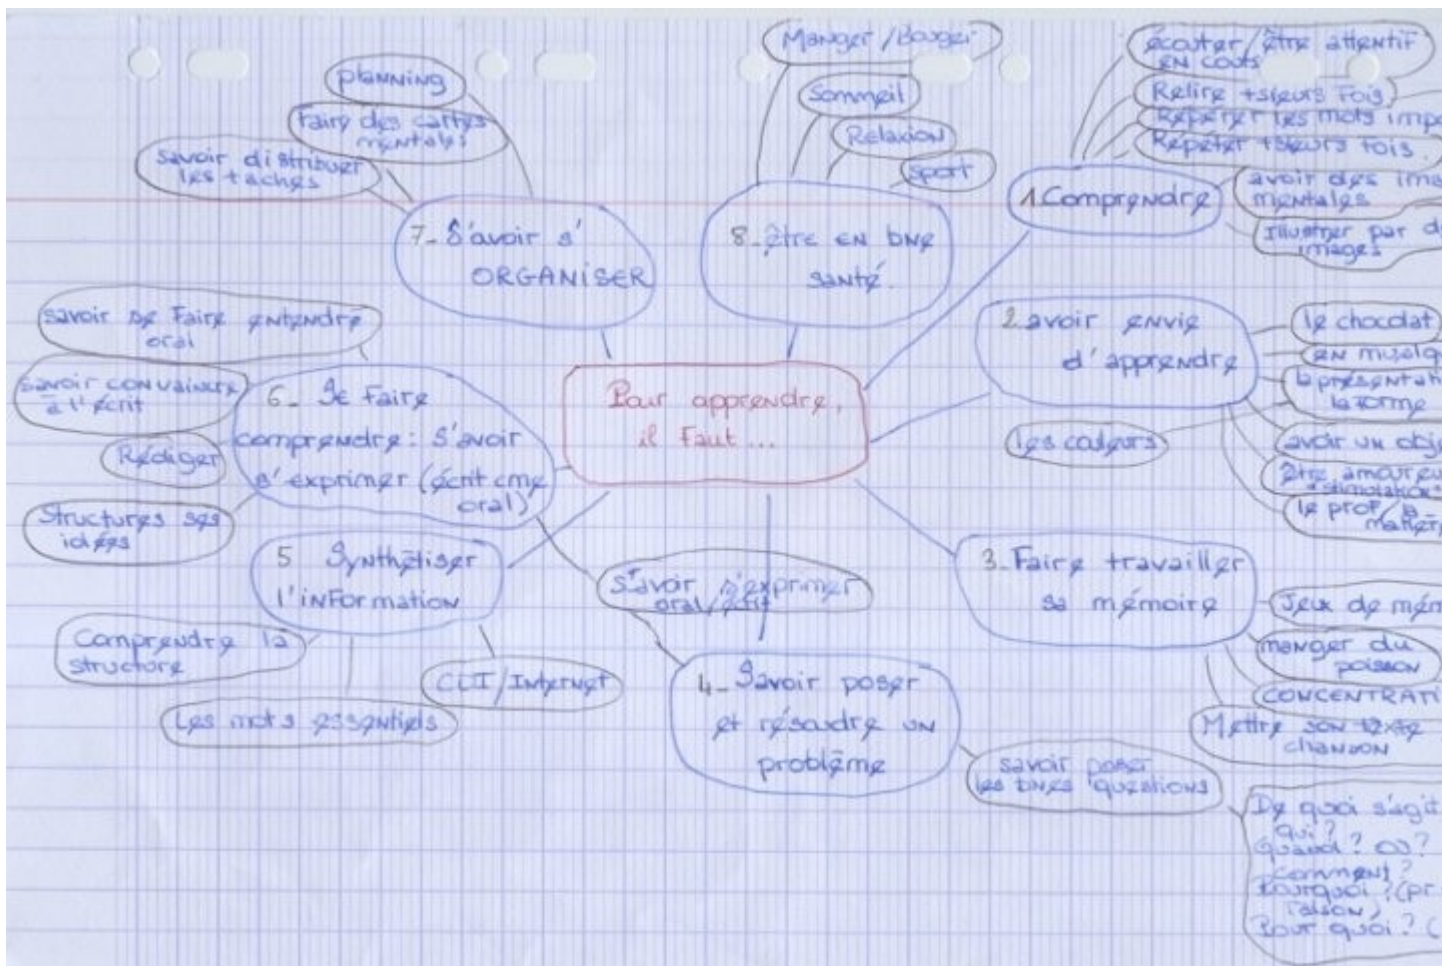 Pour apprendre,
il faut...
1. Comprendre
écouter/être attentif
en cours
Relire +sieurs Fois
Repérer les mots
Répéter +sieurs Fois.
avoir des
mentales
Illustrer par
images
2 avoir envie
d'apprendre
le chocolat
en
la
la forme
les couleurs
avoir un
être
le prof/la
3_Faire travailler
sa mémoire
Jeux de
manger du
poisson
Mettre son texte
chanson
4_Savoir poser
et résoudre un
problème
savoir poser
les bnes questions
De quoi s'agit
qui?
Quand? Où?
comment?
Pourquoi?
Pour quoi? (
s'avoir s'exprimer
oral/écrit
5 Synthétiser
l'information
Comprendre la
structure
Les mots essentiels
CDI/Internet
6_ Se Faire
comprendre: S'avoir
s'exprimer (écrit cme
oral)
savoir se Faire entendre
oral
savoir convaincre
à l'écrit
Rédiger
Structures ses
idées
7_ S'avoir s'
ORGANISER
planning
Faire des cartes
mentales
savoir distribuer
les taches
8_ être en bne
santé.
Manger/Bouger
Sommeil
Relaxion
sport